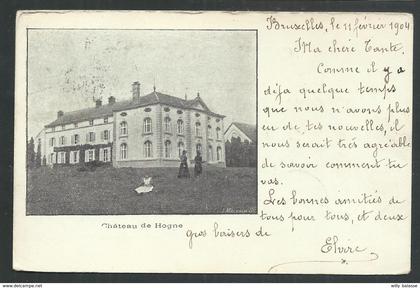 Bruxelles, le 11 février 1904.
Ma chère Tante,
Comme il y a
déja quelque temps
que nous n'avons plus
eu de tes nouvelles, il
nous serait très agréable
de savoir comment tu
vas.
Les bonnes amitiés de
tous pour tous, et deux
Château de Hogne
gros baisers de
Elvire
www.delcampe.net
willy balasse